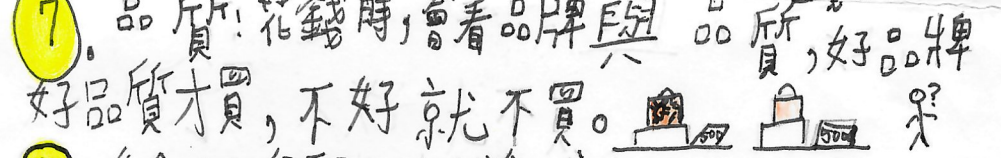 7. 品質!花錢時,會看品牌與品質,好品牌
好品質才買,不好就不買。 500 500 ?